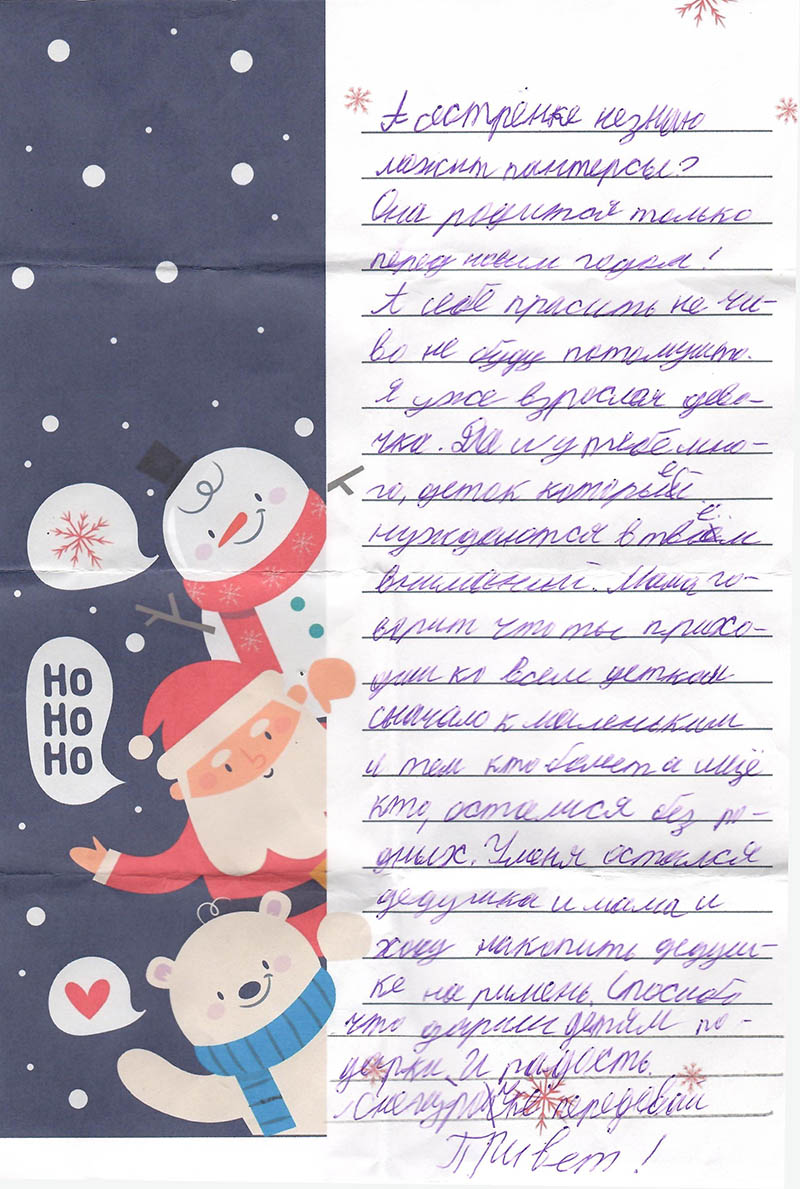 А сестрёнке незнаю
можит пантерсы?
Она родится только
перед новим годом!
А себе прасить не чи-
во не буду потомушто.
Я уже взрослая дево-
чка. Да и у тебе мно-
го, деток которые
нуждаются в твоём
вниманий. Мама го-
ворит что ты прихо-
диш ко всем деткам
сначало к маленьким
и тем кто болеет а ищё
кто, остался без ро-
дных. У меня остался
дедушка и мама и
хочу накопить дедуш-
ке на римень. Спосибо
что дариш детям по-
дарки и радость.
Снегурочке передовай
Привет!
HO
HO
HO